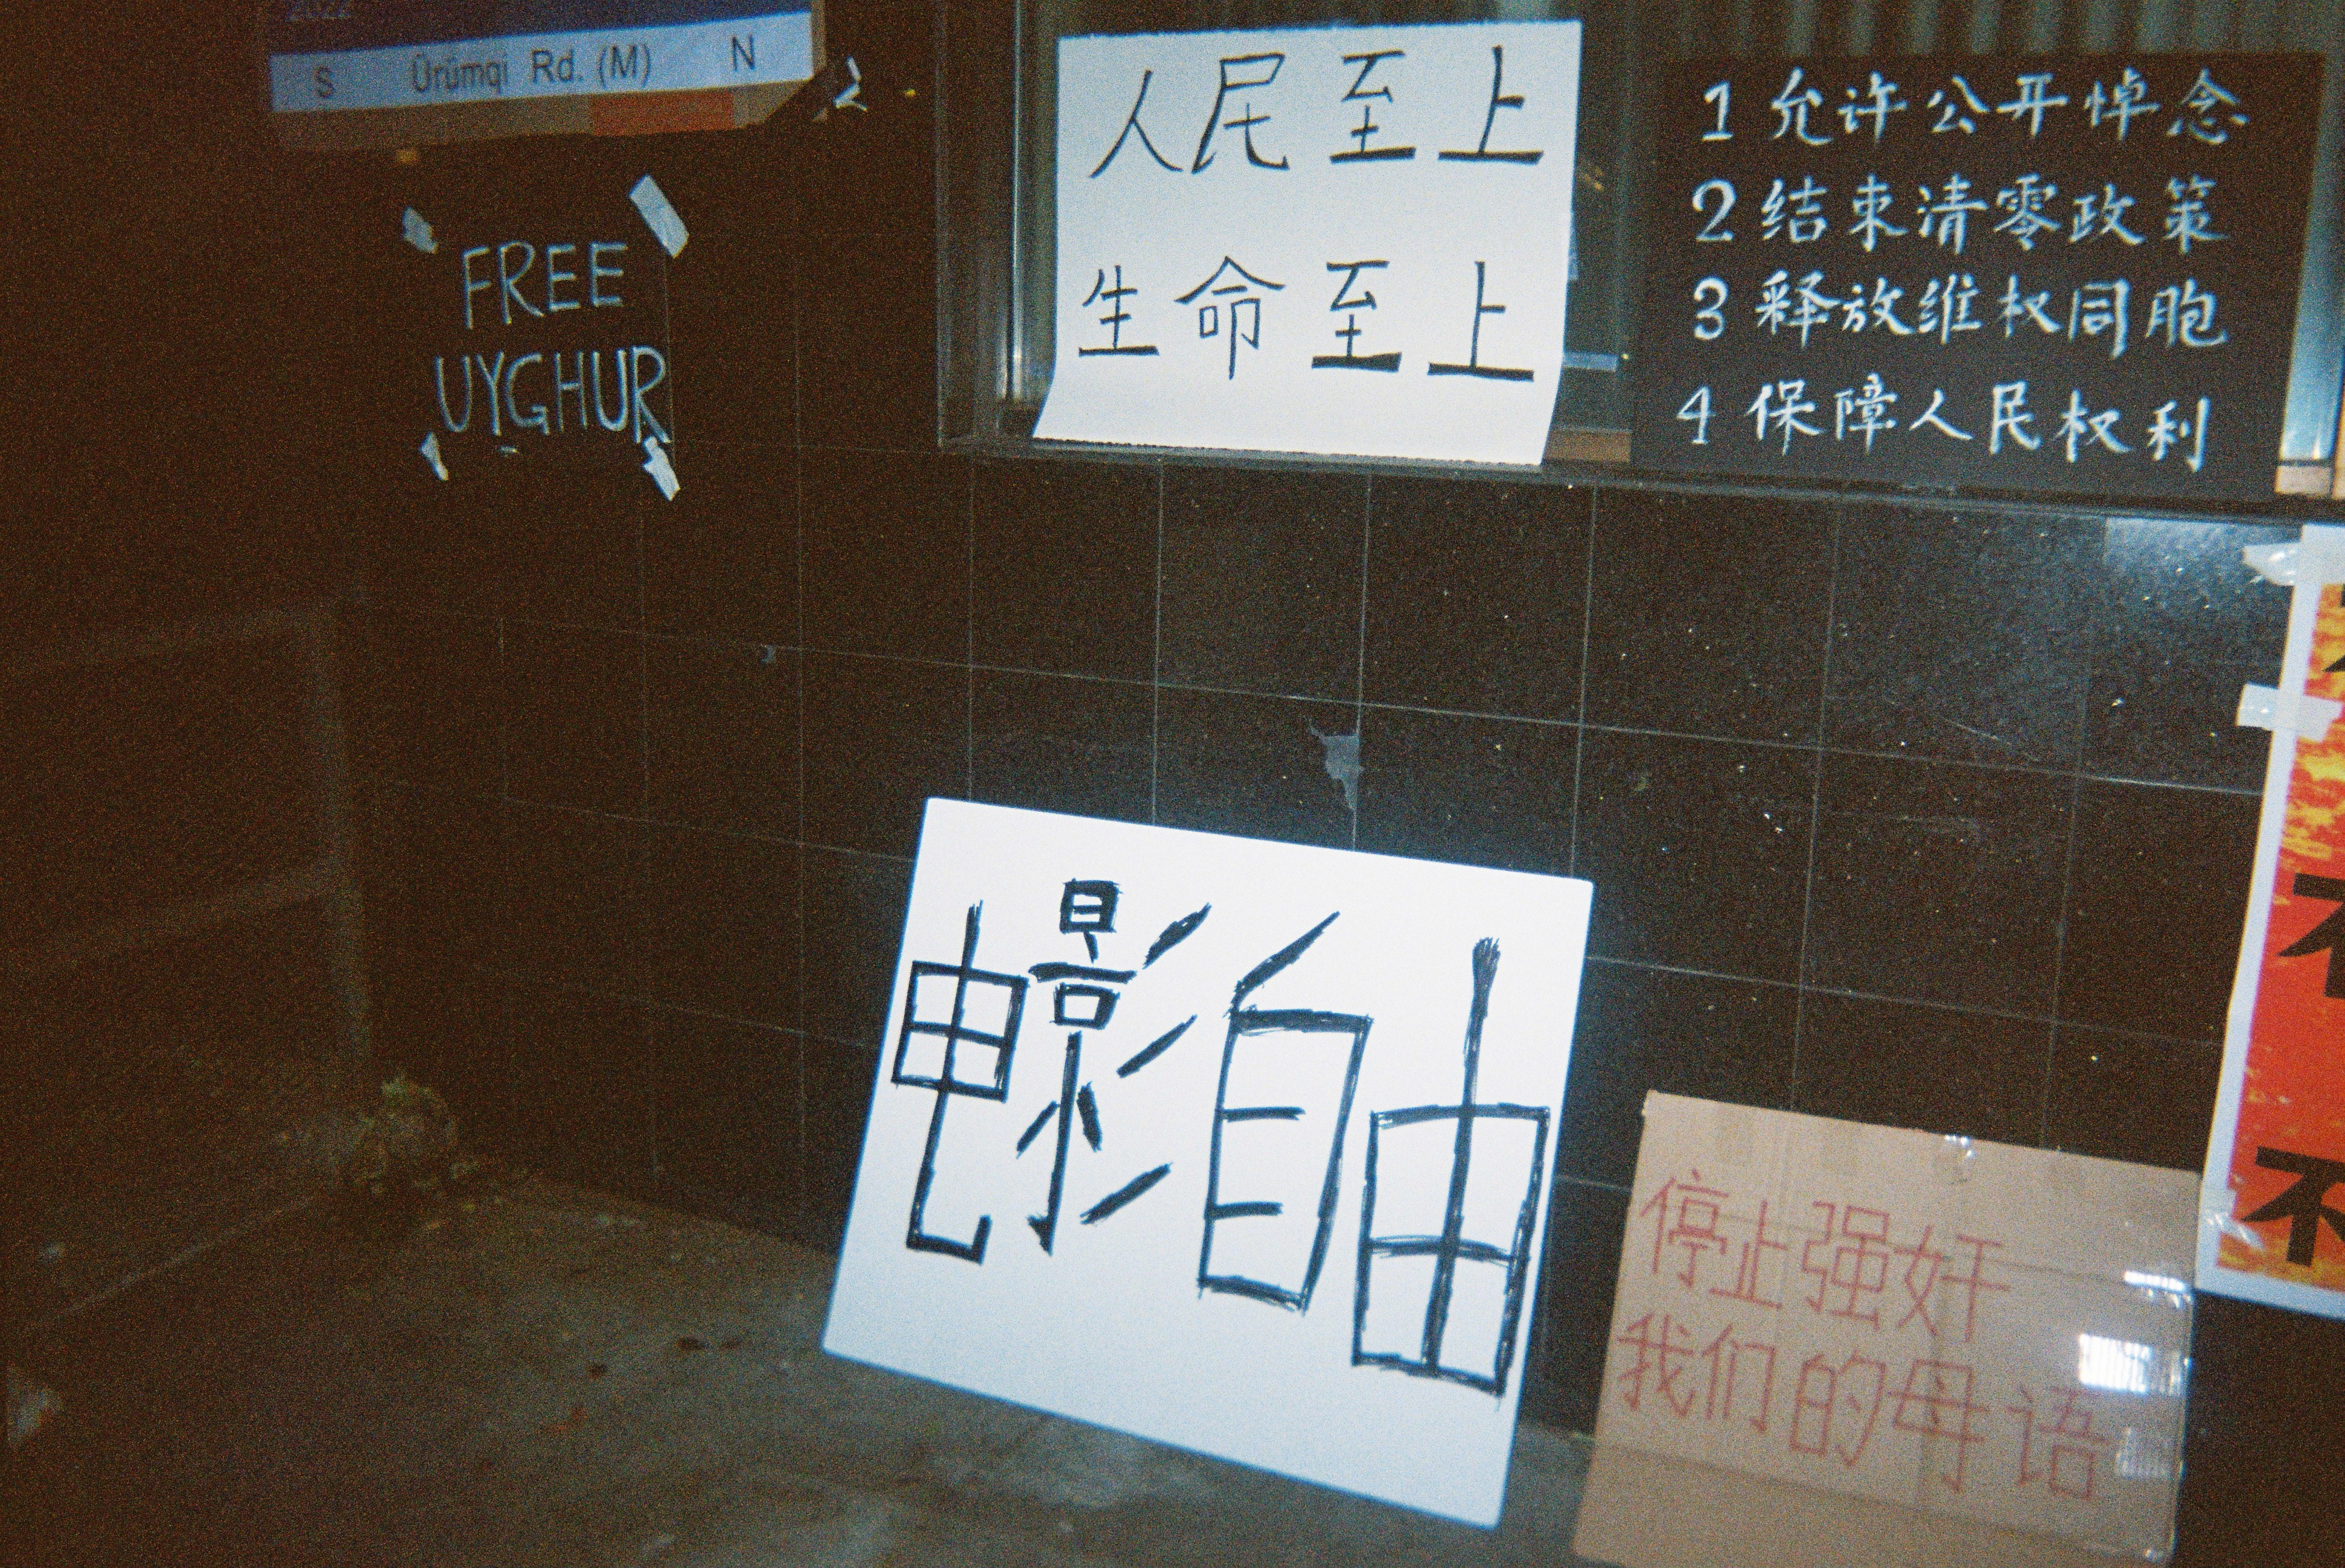 2022
S Ürümqi Rd. (M) N
FREE
UYGHUR
人民至上
生命至上
1 允许公开悼念
2 结束清零政策
3 释放维权同胞
4 保障人民权利
电影自由
停止强奸
我们的母语
不